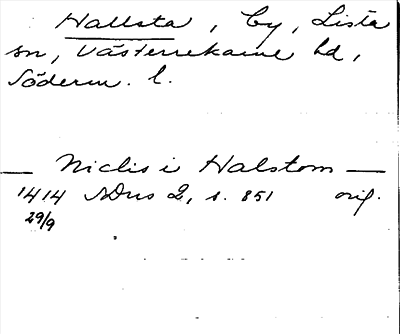 Hallsta, by, Lista
sn, Västerrekarne hd,
Söderm. l.
— Niclis i Halstom —
1414 SDns 2, s. 851 orig.
29/9